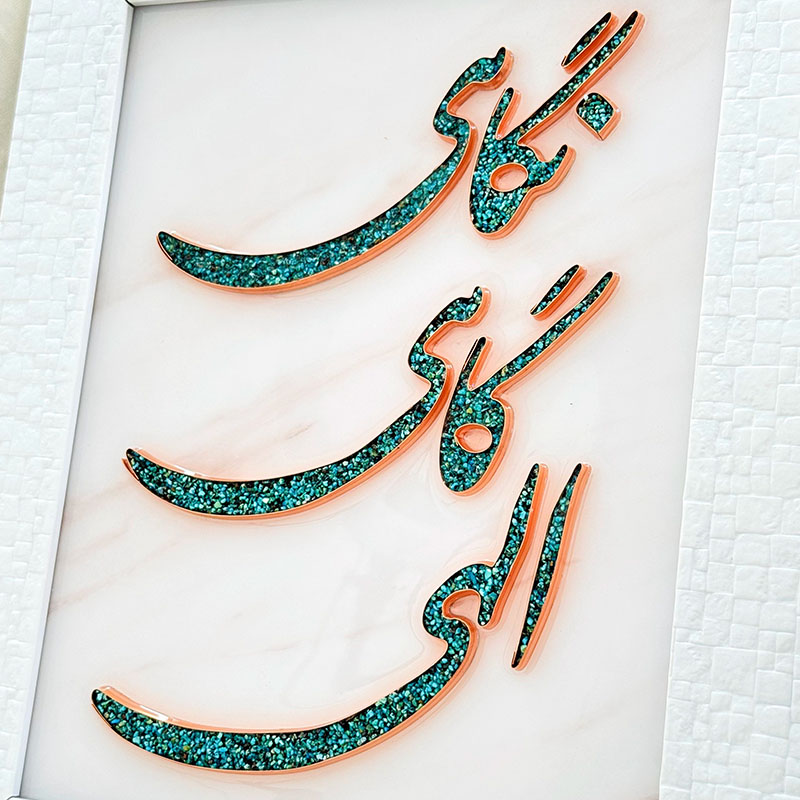 نگاهی
گاهی
الهی